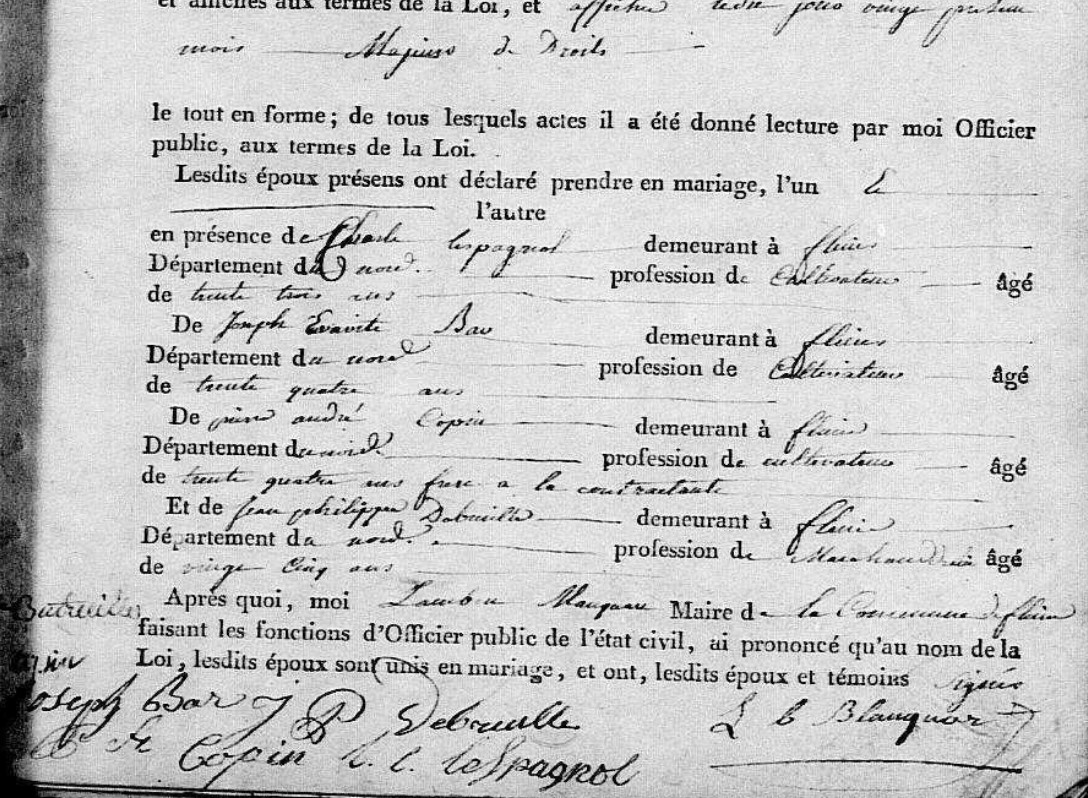 et affichés aux termes de la Loi, et affiches jour vingt
mois Majeurs de Droits
le tout en forme; de tous lesquels actes il a été donné lecture par moi Officier
public, aux termes de la Loi.
Lesdits époux présens ont déclaré prendre en mariage, l'un &
l'autre
en présence de Charle Lespagnol demeurant à flins
Département du nord. profession de Cultivateur âgé
de trente trois ans
De Joseph Bar demeurant à flins
Département du nord profession de Cultivateur âgé
de trente quatre ans
De pierre andré Copin demeurant à flins
Département du nord profession de cultivateur âgé
de trente quatre ans frere a la contractante
Et de jean philippe Debruille demeurant à flins
Département du nord. profession de âgé
de vingt Cinq ans
Après quoi, moi Maire de la Commune de flins
faisant les fonctions d'Officier public de l'état civil, ai prononcé qu'au nom de la
Loi, lesdits époux sont unis en mariage, et ont, lesdits époux et témoins signés
Joseph Bar J P Debruille L b Blanquar
Copin L. C. leSpagnol